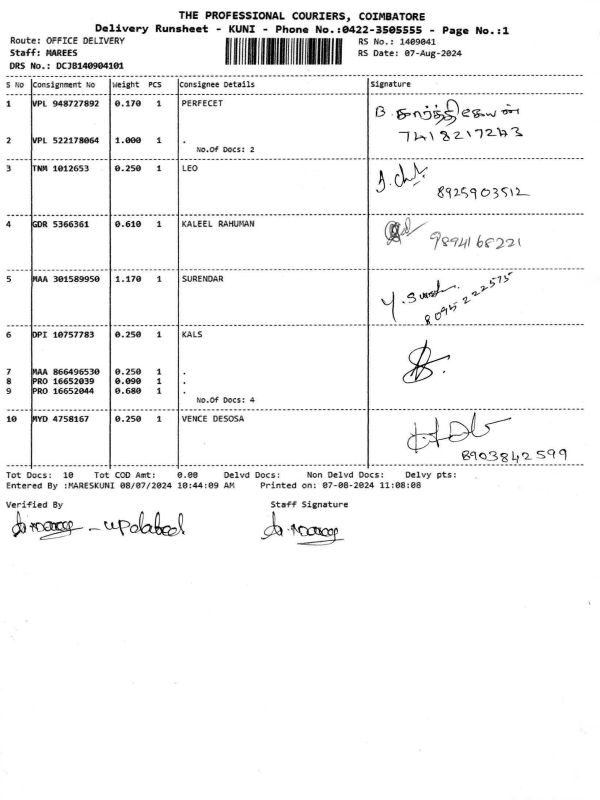 THE PROFESSIONAL COURIERS, COIMBATORE
Delivery Runsheet - KUNI - Phone No.:0422-3505555 - Page No.:1
Route: OFFICE DELIVERY RS No.: 1409041
Staff: MAREES RS Date: 07-Aug-2024
DRS No.: DCJB140904101
S No Consignment No Weight PCS Consignee Details Signature
1 VPL 948727892 0.170 1 PERFECET B. கார்த்திகேயன்
7418217243
2 VPL 522178064 1.000 1 .
No.Of Docs: 2
3 TNM 1012653 0.250 1 LEO
8925903512
4 GDR 5366361 0.610 1 KALEEL RAHUMAN
9894168221
5 MAA 301589950 1.170 1 SURENDAR
8095222575
6 DPI 10757783 0.250 1 KALS
7 MAA 866496530 0.250 1 .
8 PRO 16652039 0.090 1 .
9 PRO 16652044 0.680 1 .
No.Of Docs: 4
10 MYD 4758167 0.250 1 VENCE DESOSA
8903842599
Tot Docs: 10 Tot COD Amt: 0.00 Delvd Docs: Non Delvd Docs: Delvy pts:
Entered By :MARESKUNI 08/07/2024 10:44:09 AM Printed on: 07-08-2024 11:08:08
Verified By Staff Signature
- updated